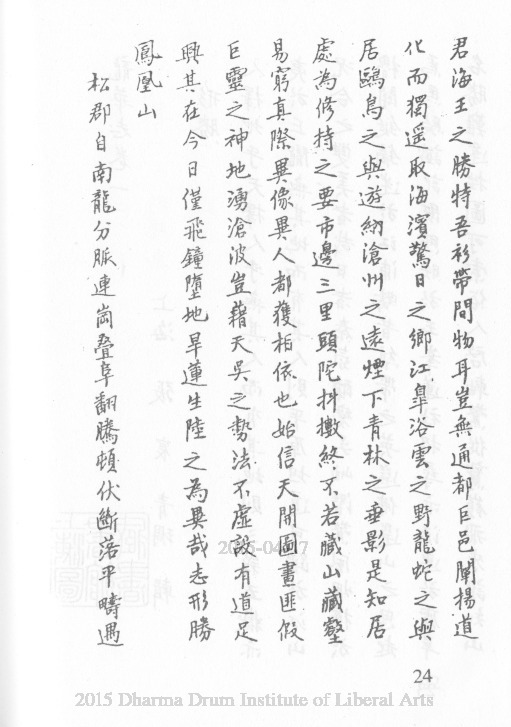 君海王之勝特吾衫帶間物耳豈無通都巨邑闡揚道
化而獨遥取海濱驚日之鄉江臯浴雲之野龍蛇之與
居鷗鳥之與遊納滄州之遠煙下青林之垂影是知居
處為修持之要市邊三里頭陀抖擻終不若藏山藏壑
易窮真際異像異人都獲栢依也始信天開圖畫匪假
巨靈之神地湧滄波豈藉天吳之勢法不虛設有道足
興其在今日僅飛鐘墮地旱蓮生陸之為異哉志形勝
鳳凰山
松郡自南龍分脈連崗叠阜翻騰頓伏斷落平疇遇
24
2015 Dharma Drum Institute of Liberal Arts